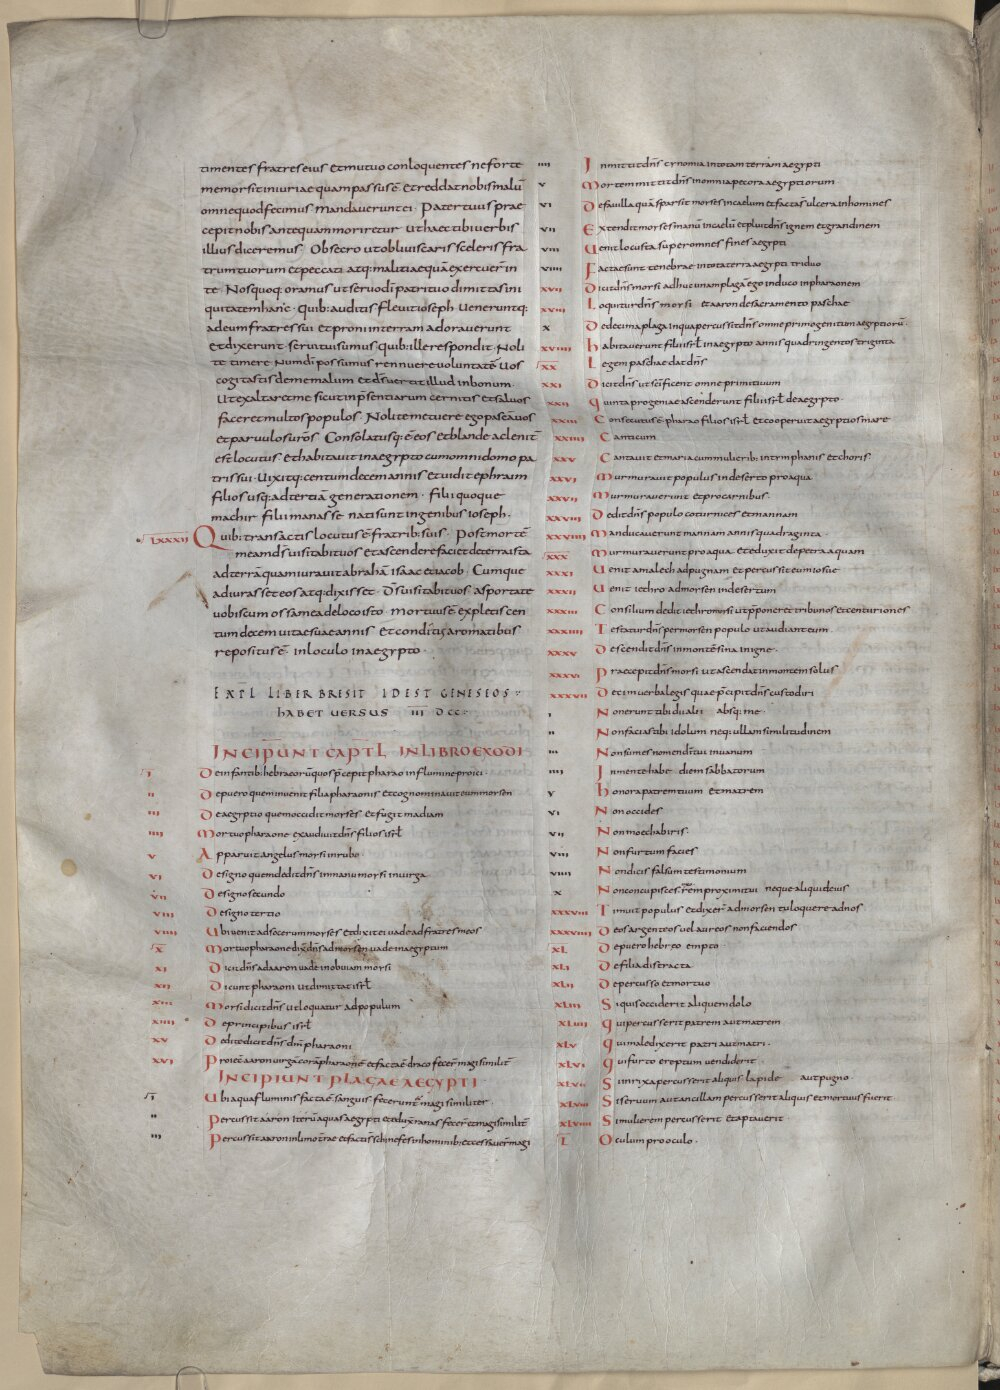 timentes fratres eius et mutuo conloquentes ne forte
memor sit iniuriae quam passus ē et reddat nobis malū
omne quod fecimus mandaverunt ei · Pater tuus prae
cepit nobis antequam moriretur ut haec tibi verbis
illius diceremus · Obsecro ut obliviscaris sceleris fra
trum tuorum et peccati atq: malitiae quā exercuer̄ in
te · Nos quoq: oramus ut servo dī patri tuo dimittas ini
quitatem hanc · Quib: auditis flevit ioseph Veneruntq:
ad eum fratres sui et proni in terram adoraverunt
et dixerunt · servi tui sumus quib: ille respondit · Noli
te timere · Num dī possumus rennuere voluntatē Vos
cogitastis de me malum et dꝰ vertit illud in bonum ·
Ut exaltaret me sicut in p̄sentiarum cernitis et salvos
faceret multos populos · Nolite metuere ego pascā vos
et parvulos ūros · Consolatusq: ē eos et blande ac lenit̄
est locutus · Et habitavit in aegypto cum omni domo pa
tris sui · Vixitq: centum decem annis et vidit ephraim
filios usq: ad tertiā generationem · filii quoque
machir filii manasse nati sunt in genibus ioseph ·
LXXXII Quib: transactis locutus ē fratrib: suis · Post mortē
meam dꝰ visitabit vos et ascendere faciet de terra ista
ad terrā quam iuravit abrahā isaac et iacob · Cumque
adiurasset eos atq: dixisset · Dꝰ visitabit vos asportate
vobiscum ossa mea de loco isto · mortuus ē expletis cen
tum decem vitae suae annis · et conditꝰ aromatibus
repositus ē in loculo in aegypto ·
EXPL LIBER BRESIT IDEST GENESIOS :
HABET VERSUS III DCC:
INCIPIUNT CAPTL IN LIBRO EXODI
I De infantib: hebraeorū quos p̄cepit pharao in flumine proici ·
II De puero quem invenit filia pharaonis et cognominavit eum morsen
III De aegyptio quem occidit morses et fugit madiam
IIII Mortuo pharaone exaudivit dn̄s filios isrl̄
V Apparuit angelus morsi in rubo
VI De signo quem dedit dn̄s in manu morsi in virga
VII De signo secundo
VIII De signo tertio
VIIII Ubi venit ad socerum morses et dixit ei vade ad fratres meos
X Mortuo pharaone dix̄ dn̄s ad morsen vade in aegyptum
XI Dicit dn̄s ad aaron vade in obviam morsi
XII Dicunt pharaoni ut dimittat isrl̄
XIII Morsi dicit dn̄s ut loquatur ad populum
XIIII De principibus isrl̄
XV
XVI Proiec̄ aaron virgā corā pharaone et factaē draco fecer̄ magi similit̄
INCIPIUNT PLAGAE AEGYPTI
I Ubi aqua fluminis factaē sanguis fecerunt magi similiter ·
II Percussit aaron iterū aquas aegypti et eduxit ranas fecer̄ et magi similit̄
III Percussit aaron in limo t̄rae et factiš scinefes in hominib: et cessaver̄ magi
IIII Inmittit dn̄s cynomia in totam terram aegypti
V Mortem mittit dn̄s in omnia pecora aegyptiorum
VI De favilla quā sparsit morses in caelum et factaš ulcera in homines
VII Extendit morses manū in caelū et pluit dn̄s ignem et grandinem
VIII Venit locusta super omnes fines aegypti
VIIII Factae sunt tenebrae in tota terra aegypti triduo
XVII Dicit dn̄s morsi adhuc unam plagā ego induco in pharaonem
XVIII Loquitur dn̄s morsi et aaron de sacramento paschae
X De decima plaga in qua percussit dn̄s omne primogenitum aegyptiorū ·
XVIIII habitaverunt filii isrl̄ in aegypto annis quadringentos triginta
XX Legem paschae dat dn̄s
XXI Dicit dn̄s ut sc̄ificent omne primitivum
XXII Quinta progenia e ascenderunt filii isrl̄ de aegypto ·
XXIII Consecutus ē pharao filios isrl̄ et cooperuit aegyptios mare
XXIIII Canticum
XXV Cantavit et maria cum mulierib: in tymphanis et choris
XXVI Murmuravit populus in deserto pro aqua
XXVII Murmuraverunt et pro carnibus ·
XXVIII Dedit dn̄s populo coturnices et mannam
XXVIIII Manducaverunt mannam annis quadraginta ·
XXX Murmuraverunt pro aqua et eduxit de petra aquam
XXXI Venit amalech ad pugnam et percussit eum iosue
XXXII Venit iethro ad morsen in desertum
XXXIII Consilium dedit iethro morsi ut p̄poneret tribunos et centuriones
XXXIIII Testatur dn̄s per morsen populo ut audiant eum ·
XXXV Descendit dn̄s in montē sina in igne ·
XXXVI Praecepit dn̄s morsi ut ascendat in montem solus
XXXVII Decim verba legis quae p̄cipit dn̄s custodiri
I Non erunt tibi dii alii absq: me ·
II Non facias tibi idolum neq: ullam similitudinem
III Non sumes nomen dī tui in vanum
IIII In mente habe diem sabbatorum
V honora patrem tuum et matrem
VI Non occides
VII Non moechabiris ·
VIII Non furtum facies
VIIII Non dicis falsum testimonium
X Non concupisces rem proximi tui neque aliquid eius
XXXVIII Timuit populus et dixer̄ ad morsen tu loquere ad nos
XXXVIIII Deos argenteos vel aureos non faciendos
XL De puero hebreo empto ·
XLI De filia distracta
XLII De percusso et mortuo
XLIII Si quis occiderit aliquem dolo
XLIIII Qui percusserit patrem aut matrem
XLV Qui maledixerit patri aut matri ·
XLVI Qui furto ereptum vendiderit ·
XLVII Si in rixa percusserit aliquis lapide aut pugno ·
XLVIII Si servum aut ancillam percusserit aliquis et mortuus fuerit
XLVIIII Si mulierem percusserit et aptaverit
L Oculum pro oculo ·